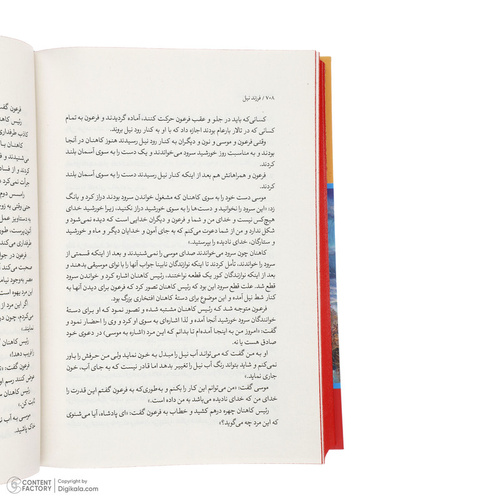 ۷۰۸ / فرزند نیل
کسانی‌که باید در جلو و عقب فرعون حرکت کنند، آماده گردیدند و فرعون به تمام
کسانی که در تالار بارعام بودند اجازه داد که با او به کنار رود نیل بروند.
وقتی فرعون و موسی و نون و دیگران به کنار رود نیل رسیدند هنوز کاهنان در آنجا
بودند و به مناسبت روز خورشید سرود می‌خواندند و یک دست را به سوی آسمان بلند
کردند.
فرعون و همراهانش هم بعد از اینکه کنار نیل رسیدند یک دست را به سوی آسمان بلند
کردند.
موسی دست خود را به سوی کاهنان که مشغول خواندن سرود بودند دراز کرد و بانگ
زد: «این سرود را نخوانید و دست‌ها را به سوی خورشید دراز نکنید، زیرا خورشید خدای
هیچ‌کس نیست و خدای من و شما و فرعون و دیگران خدایی است که دیده نمی‌شود و
شکل ندارد و من از شما دعوت می‌کنم که به جای آمون و خدایان دیگر و ماه و خورشید
و ستارگان، خدای نادیده را بپرستید.»
کاهنان چون سرود می‌خواندند صدای موسی را نمی‌شنیدند و بعد از اینکه قسمتی از
سرود را خواندند، تأمل کردند تا اینکه نوازندگان نابینا جواب آنها را با نوای موسیقی بدهند و
بعد از اینکه نوازندگان کور یک قطعه نواختند، رئیس کاهنان اشاره کرد و خواندن سرود
قطع شد. علت قطع سرود این بود که رئیس کاهنان تصور کرد که فرعون برای دیدن آنها به
کنار شط نیل آمده و این موضوع برای دستهٔ کاهنان افتخاری بزرگ بود.
فرعون متوجه شد که رئیس کاهنان مشتبه شده و تصور نمود که او برای دستهٔ
خوانندگان سرود خورشید آنجا آمده و لذا اشاره‌ای به سوی او کرد و وی را احضار نمود و
گفت: «امروز من به اینجا آمده‌ام تا بدانم که این مرد (اشاره به موسی) در دعوی خود
صادق هست یا نه.
او به من گفت که می‌تواند آب نیل را مبدل به خون نماید ولی من حرفش را باور
نکردم و شاید بتواند رنگ آب نیل را تغییر بدهد اما قادر نیست که به جای آب، خون
جاری نماید.»
موسی گفت: «من توانم این کار را بکنم و به‌طوری‌که به فرعون گفتم این قدرت را
خدای من که خدای نادیده می‌باشد به من داده است.»
رئیس کاهنان چهره درهم کشید و خطاب به فرعون گفت: «ای پادشاه، آیا می‌شنوی
که این مرد چه می‌گوید؟»
فرعون گفت
رئیس کاهنان
کاذب طرفداری
کاهنان با
می‌شنیدند و
کردند و از فساد
جرأت نمی‌کرد
رامسس دوم
به دستاویز عمل
طرفداری می
فرعون در جواب
صحبت می‌کند
مصر به‌وجود نیامده
این مرد بهوه است
اگر این مرد
کرده‌ام، چون در
نمایند.»
رئیس کاهنان
را فریب دهد!»
فرعون گفت:
عوض کنند رسم
رئیس کاهنان
ثابت کن.»
موسی به آب
خاک پاشید.
CONTENT FACTORY | Content Factory @ Digikala.com